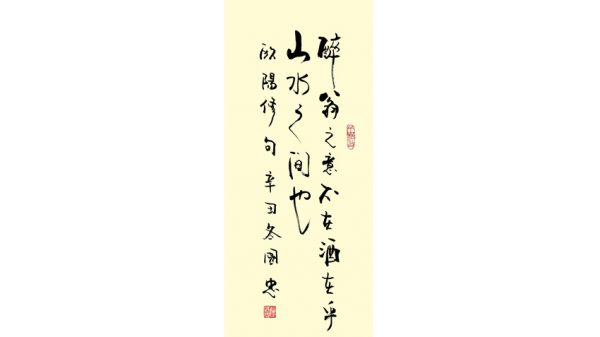 醉翁之意不在酒在乎
山水之间也
欧陽修句辛丑冬国忠